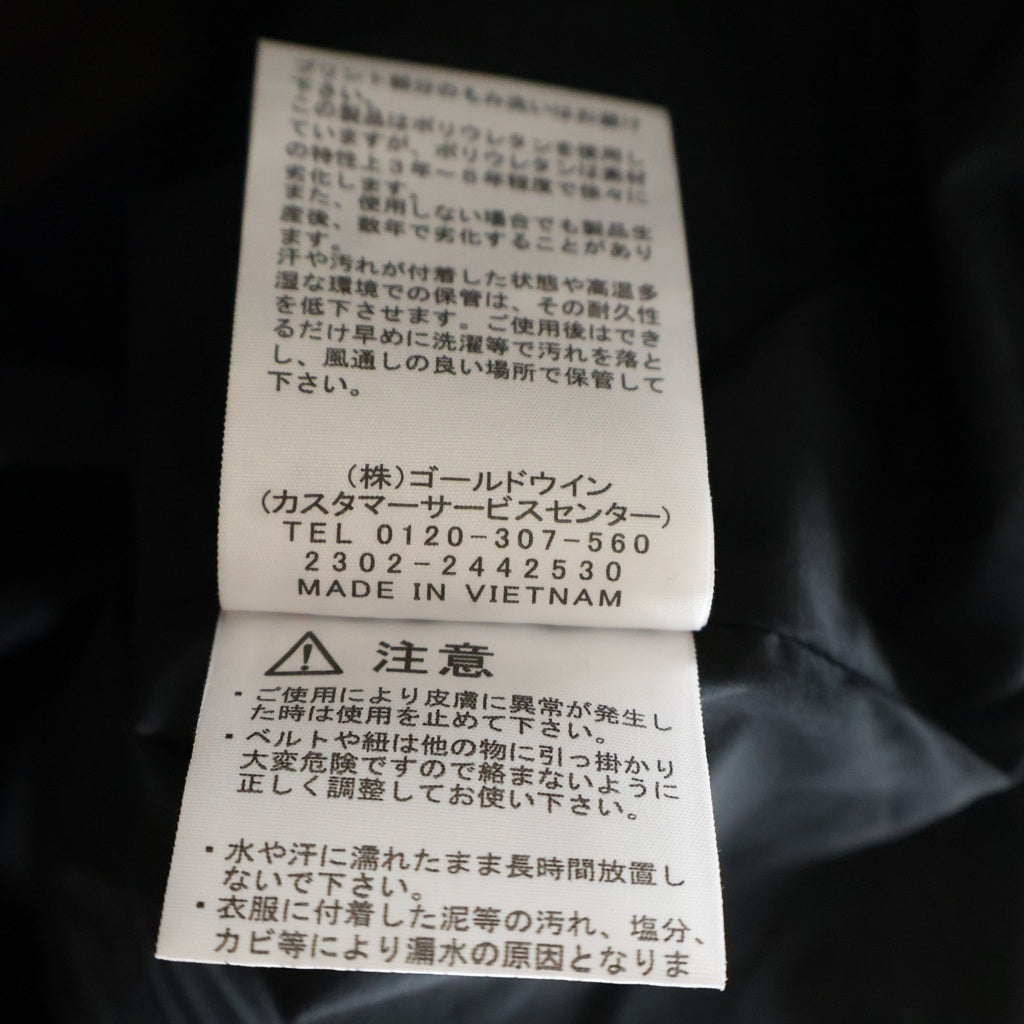 プリント部分のもみ洗いはお避け
下さい。
この製品はポリウレタンを使用し
ていますが、ポリウレタンは素材
の特性上3年～5年程度で徐々に
劣化します。
また、使用しない場合でも製品生
産後、数年で劣化することがあり
ます。
汗や汚れが付着した状態や高温多
湿な環境での保管は、その耐久性
を低下させます。ご使用後はでき
るだけ早めに洗濯等で汚れを落と
し、風通しの良い場所で保管して
下さい。
(株)ゴールドウイン
(カスタマーサービスセンター)
TEL 0120-307-560
2302-2442530
MADE IN VIETNAM
注意
・ご使用により皮膚に異常が発生し
た時は使用を止めて下さい。
・ベルトや紐は他の物に引っ掛かり
大変危険ですので絡まないように
正しく調整してお使い下さい。
・水や汗に濡れたまま長時間放置し
ないで下さい。
・衣服に付着した泥等の汚れ、塩分、
カビ等により漏水の原因となりま